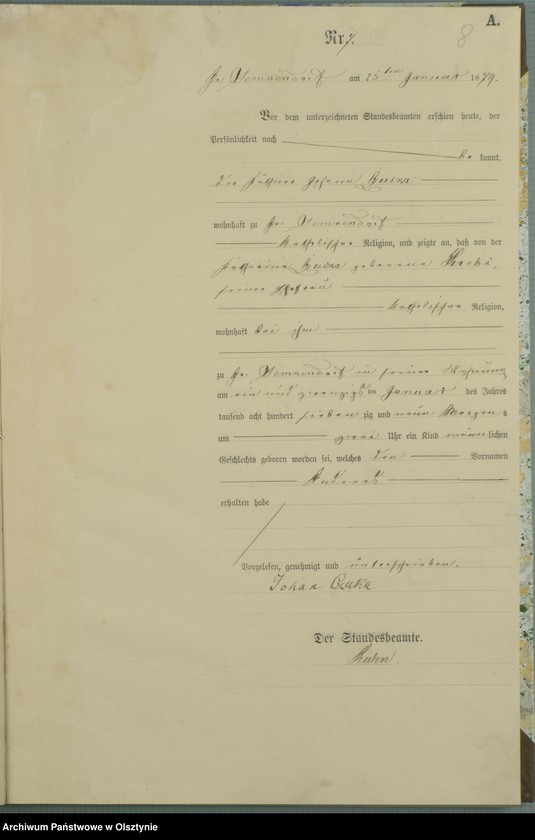 A.
8
Nr. 7.
Gr. Ramsau am 25ten Januar 1879.
Vor dem unterzeichneten Standesbeamten erschien heute, der
Persönlichkeit nach
be kannt,
der Johann
wohnhaft zu Gr.
katholischer Religion, und zeigte an, daß von der
Katharina geborene
seiner Ehefrau
katholischer Religion,
wohnhaft bei ihm
zu Gr. in seiner Wohnung
am ein und zwanzigsten Januar des Jahres
tausend acht hundert sieben zig und neun Morgens
um zwei Uhr ein Kind männlichen
Geschlechts geboren worden sei, welches den Vornamen
Andreas
erhalten habe
Vorgelesen, genehmigt und unterschrieben.
Johan
Der Standesbeamte.
Archiwum Państwowe w Olsztynie